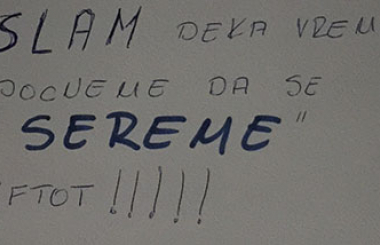 SLAM DEKA VREM
POCNEME DA SE
SEREME"
FTOT !!!!!